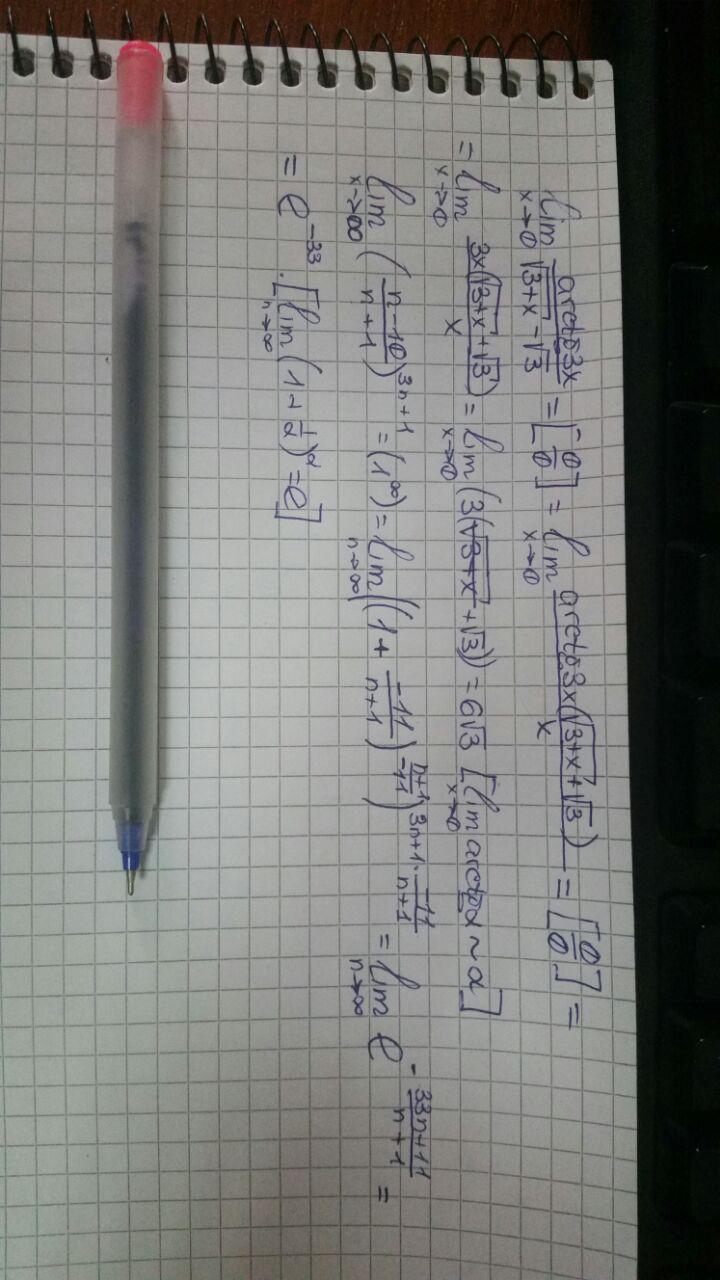 lim_{x→0} \frac{arctg 3x}{\sqrt{3+x} - \sqrt{3}} = [\frac{0}{0}] = lim_{x→0} \frac{arctg 3x(\sqrt{3+x} + \sqrt{3})}{x} = [\frac{0}{0}] =
= lim_{x→0} \frac{3x(\sqrt{3+x} + \sqrt{3})}{x} = lim_{x→0} (3(\sqrt{3+x} + \sqrt{3})) = 6\sqrt{3} [lim_{x→0} arctg α ~ α]
lim_{x→∞} (\frac{n-10}{n+1})^{3n+1} = (1^∞) = lim_{n→∞} ((1 + \frac{-11}{n+1})^{\frac{n+1}{-11}})^{3n+1 · \frac{-11}{n+1}} = lim_{n→∞} e^{-\frac{33n+11}{n+1}} =
= e^{-33} · [lim_{n→∞} (1 + \frac{1}{α})^{α} = e]